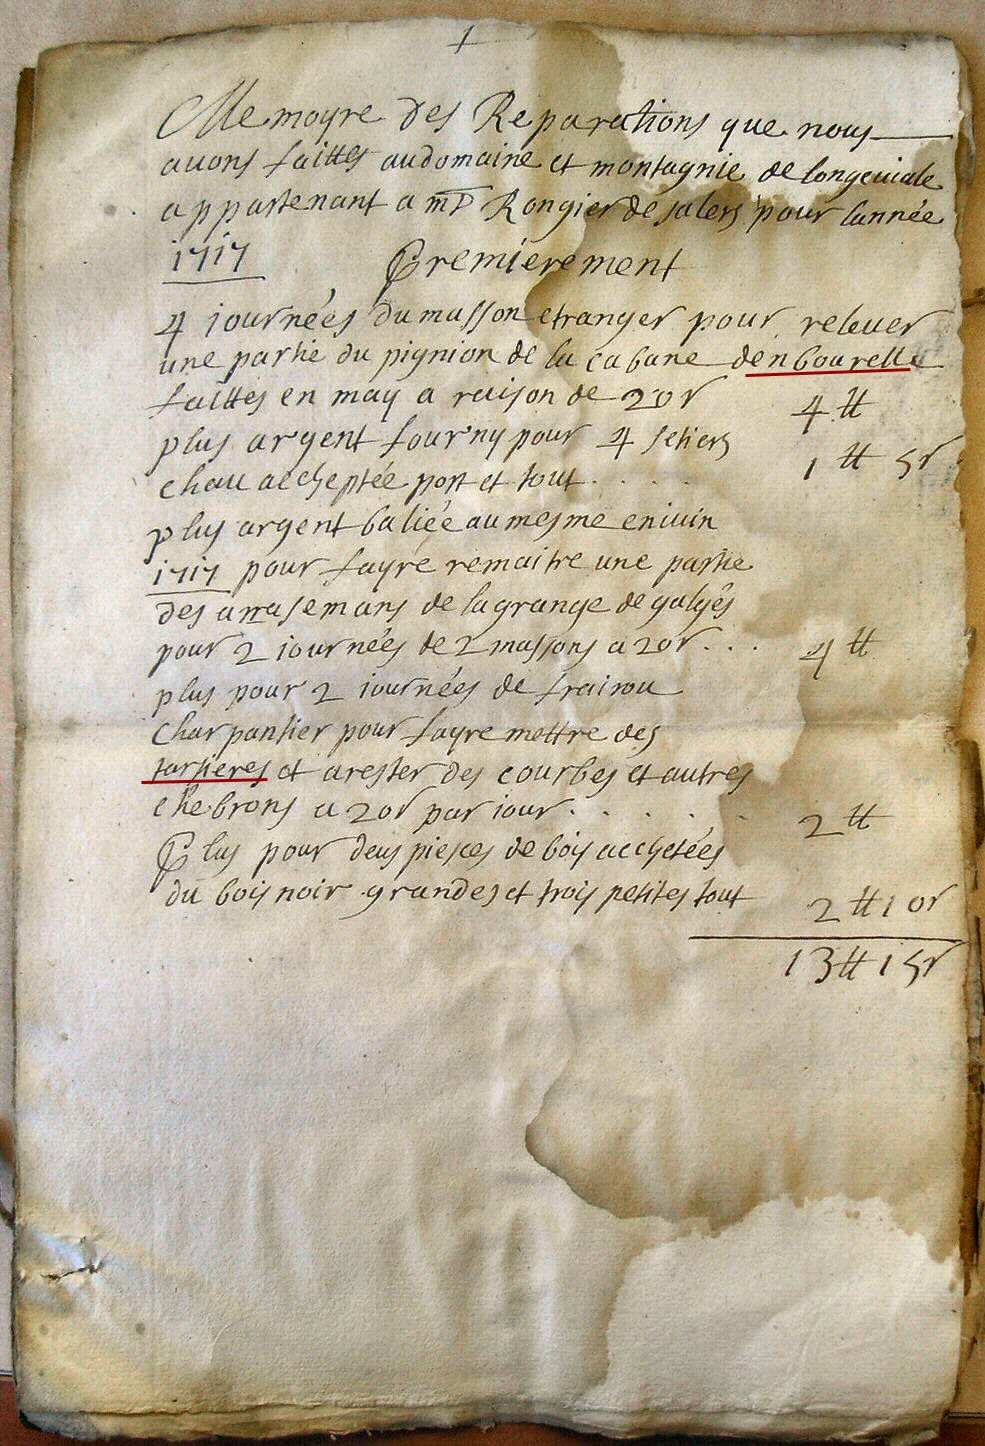 1
Memoyre des Reparations que nous
avons faittes audomaine et montagnie de longeviale
appartenant a mr Rongier de salers pour lannée
1717 Premierement
4 journées du masson etranger pour relever
une partie du pignion de la cabane denbourelle
faittes en may a raison de 20s 4 ₶
plus argent fourny pour 4 setiers
chau accheptée port et tout . . . . 1 ₶ 5s
plus argent baliée au mesme en iuin
1717 pour fayre remaitre une partie
des arrasemans de la grange de galgés
pour 2 journées de 2 massons a 20s . . . 4 ₶
plus pour 2 journées de frairou
charpantier pour fayre mettre des
tortieres et arester des courbes et autres
chebrons a 20s par jour . . . . . 2 ₶
Plus pour deus pieses de bois acchetées
du bois noir grandes et trois petites tout 2 ₶ 10s
13 ₶ 15s